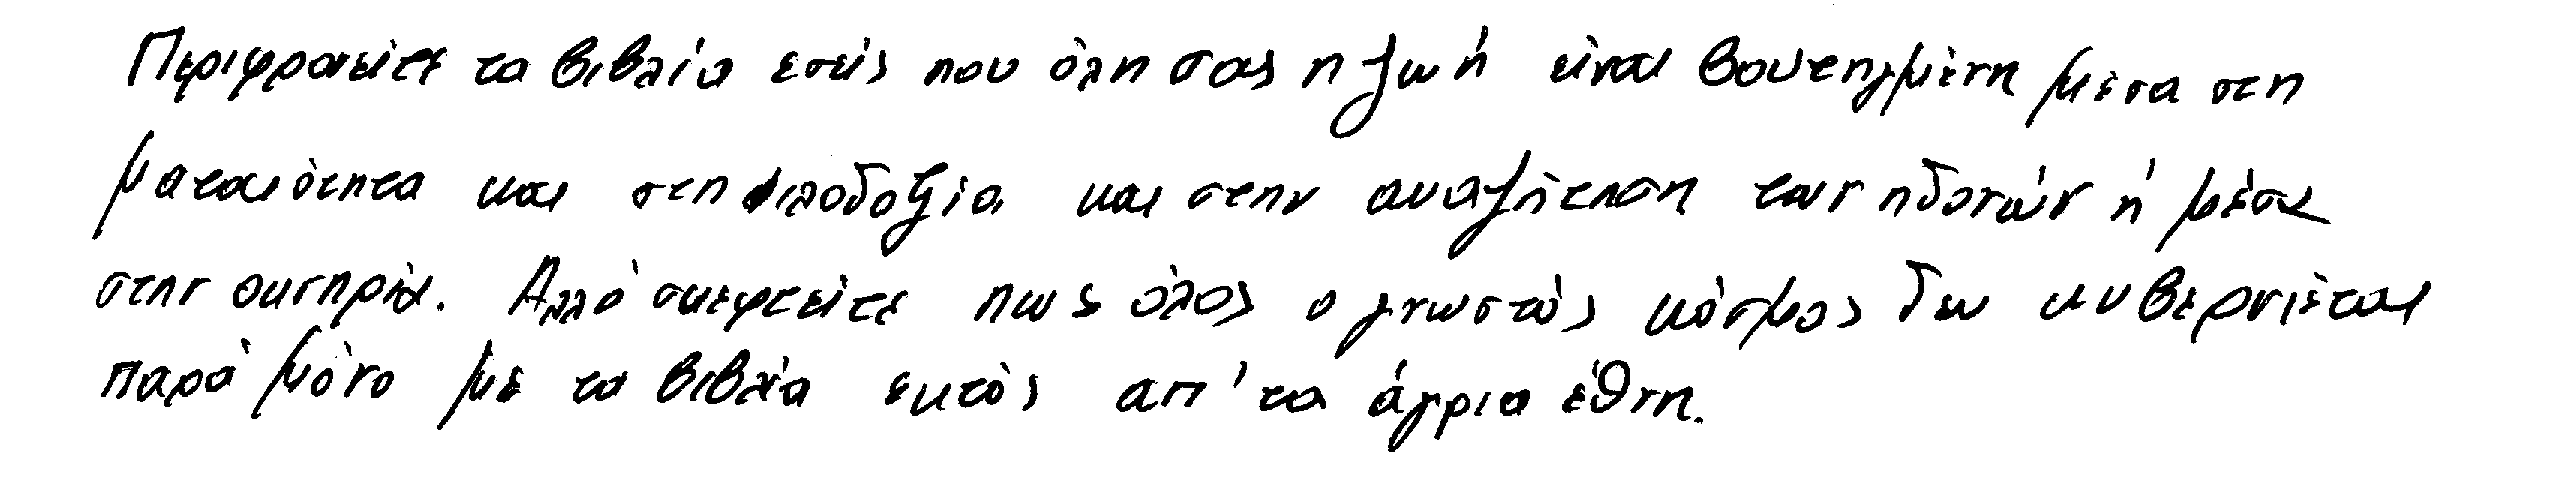 Περιφρονείτε τα βιβλία εσείς που όλη σας η ζωή είναι βουτηγμένη μέσα στη
ματαιότητα και στη φιλοδοξία και στην αναζήτηση των ηδονών ή μέσα
στην οκνηρία. Αλλά σκεφτείτε πως όλος ο γνωστός κόσμος δεν κυβερνιέται
παρά μόνο με τα βιβλία εκτός απ' τα άγρια έθνη.